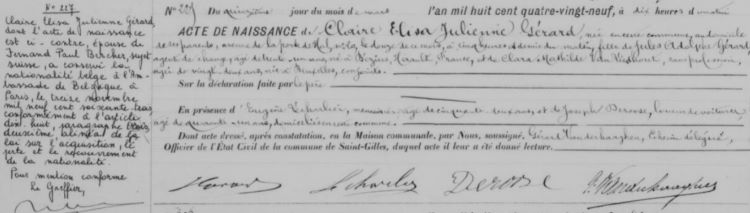 No 227
Claire Elisa Julienne Gérard,
dont l'acte de naissance
est ci-contre, épouse de
Fernand Paul Bircher, sujet
suisse, a conservé la
nationalité belge à l'Am-
bassade de Belgique à
Paris, le treize novembre
mil neuf cent soixante-trois
conformément à l'article
dix-huit, paragraphe
deuxième alinéa de la
loi sur l'acquisition, la
perte et le recouvrement
de la nationalité.
Pour mention conforme
Le Greffier,
No 227 Du quinzième jour du mois de mars l'an mil huit cent quatre-vingt-neuf, à dix heures du matin
ACTE DE NAISSANCE de Claire Elisa Julienne Gérard, née en cette commune, au domicile
de ses parents, avenue de la porte de Hal, le douze de ce mois, à cinq heures et demie du matin, fille de Jules Gérard,
agent de change, âgé de trente-un ans, né à Béziers, Hérault, France, et de Clara Mathilde
âgée de vingt ans, née à Bruxelles, conjoints.
Sur la déclaration faite par le père
En présence d'Eugène Scharlier, menuisier, âgé de cinquante ans, et de Joseph Deroose, loueur de voitures
âgé de quarante-un ans, domiciliés en cette commune.
Dont acte dressé, après constatation, en la Maison communale, par Nous, soussigné, Gérard Echevin délégué,
Officier de l'État Civil de la commune de Saint-Gilles, duquel acte il leur a été donné lecture.
Deroose